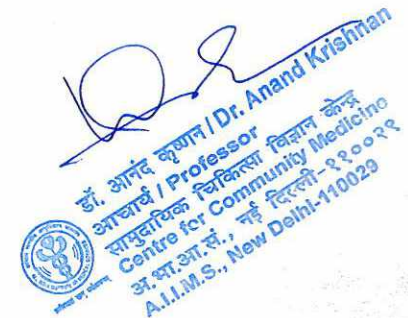 डॉ. आनंद कृष्णन / Dr. Anand Krishnan
आचार्य / Professor
सामुदायिक चिकित्सा विज्ञान केन्द्र
Centre for Community Medicine
अ.भा.आ.सं., नई दिल्ली-११००२९
A.I.I.M.S., New Delhi-110029